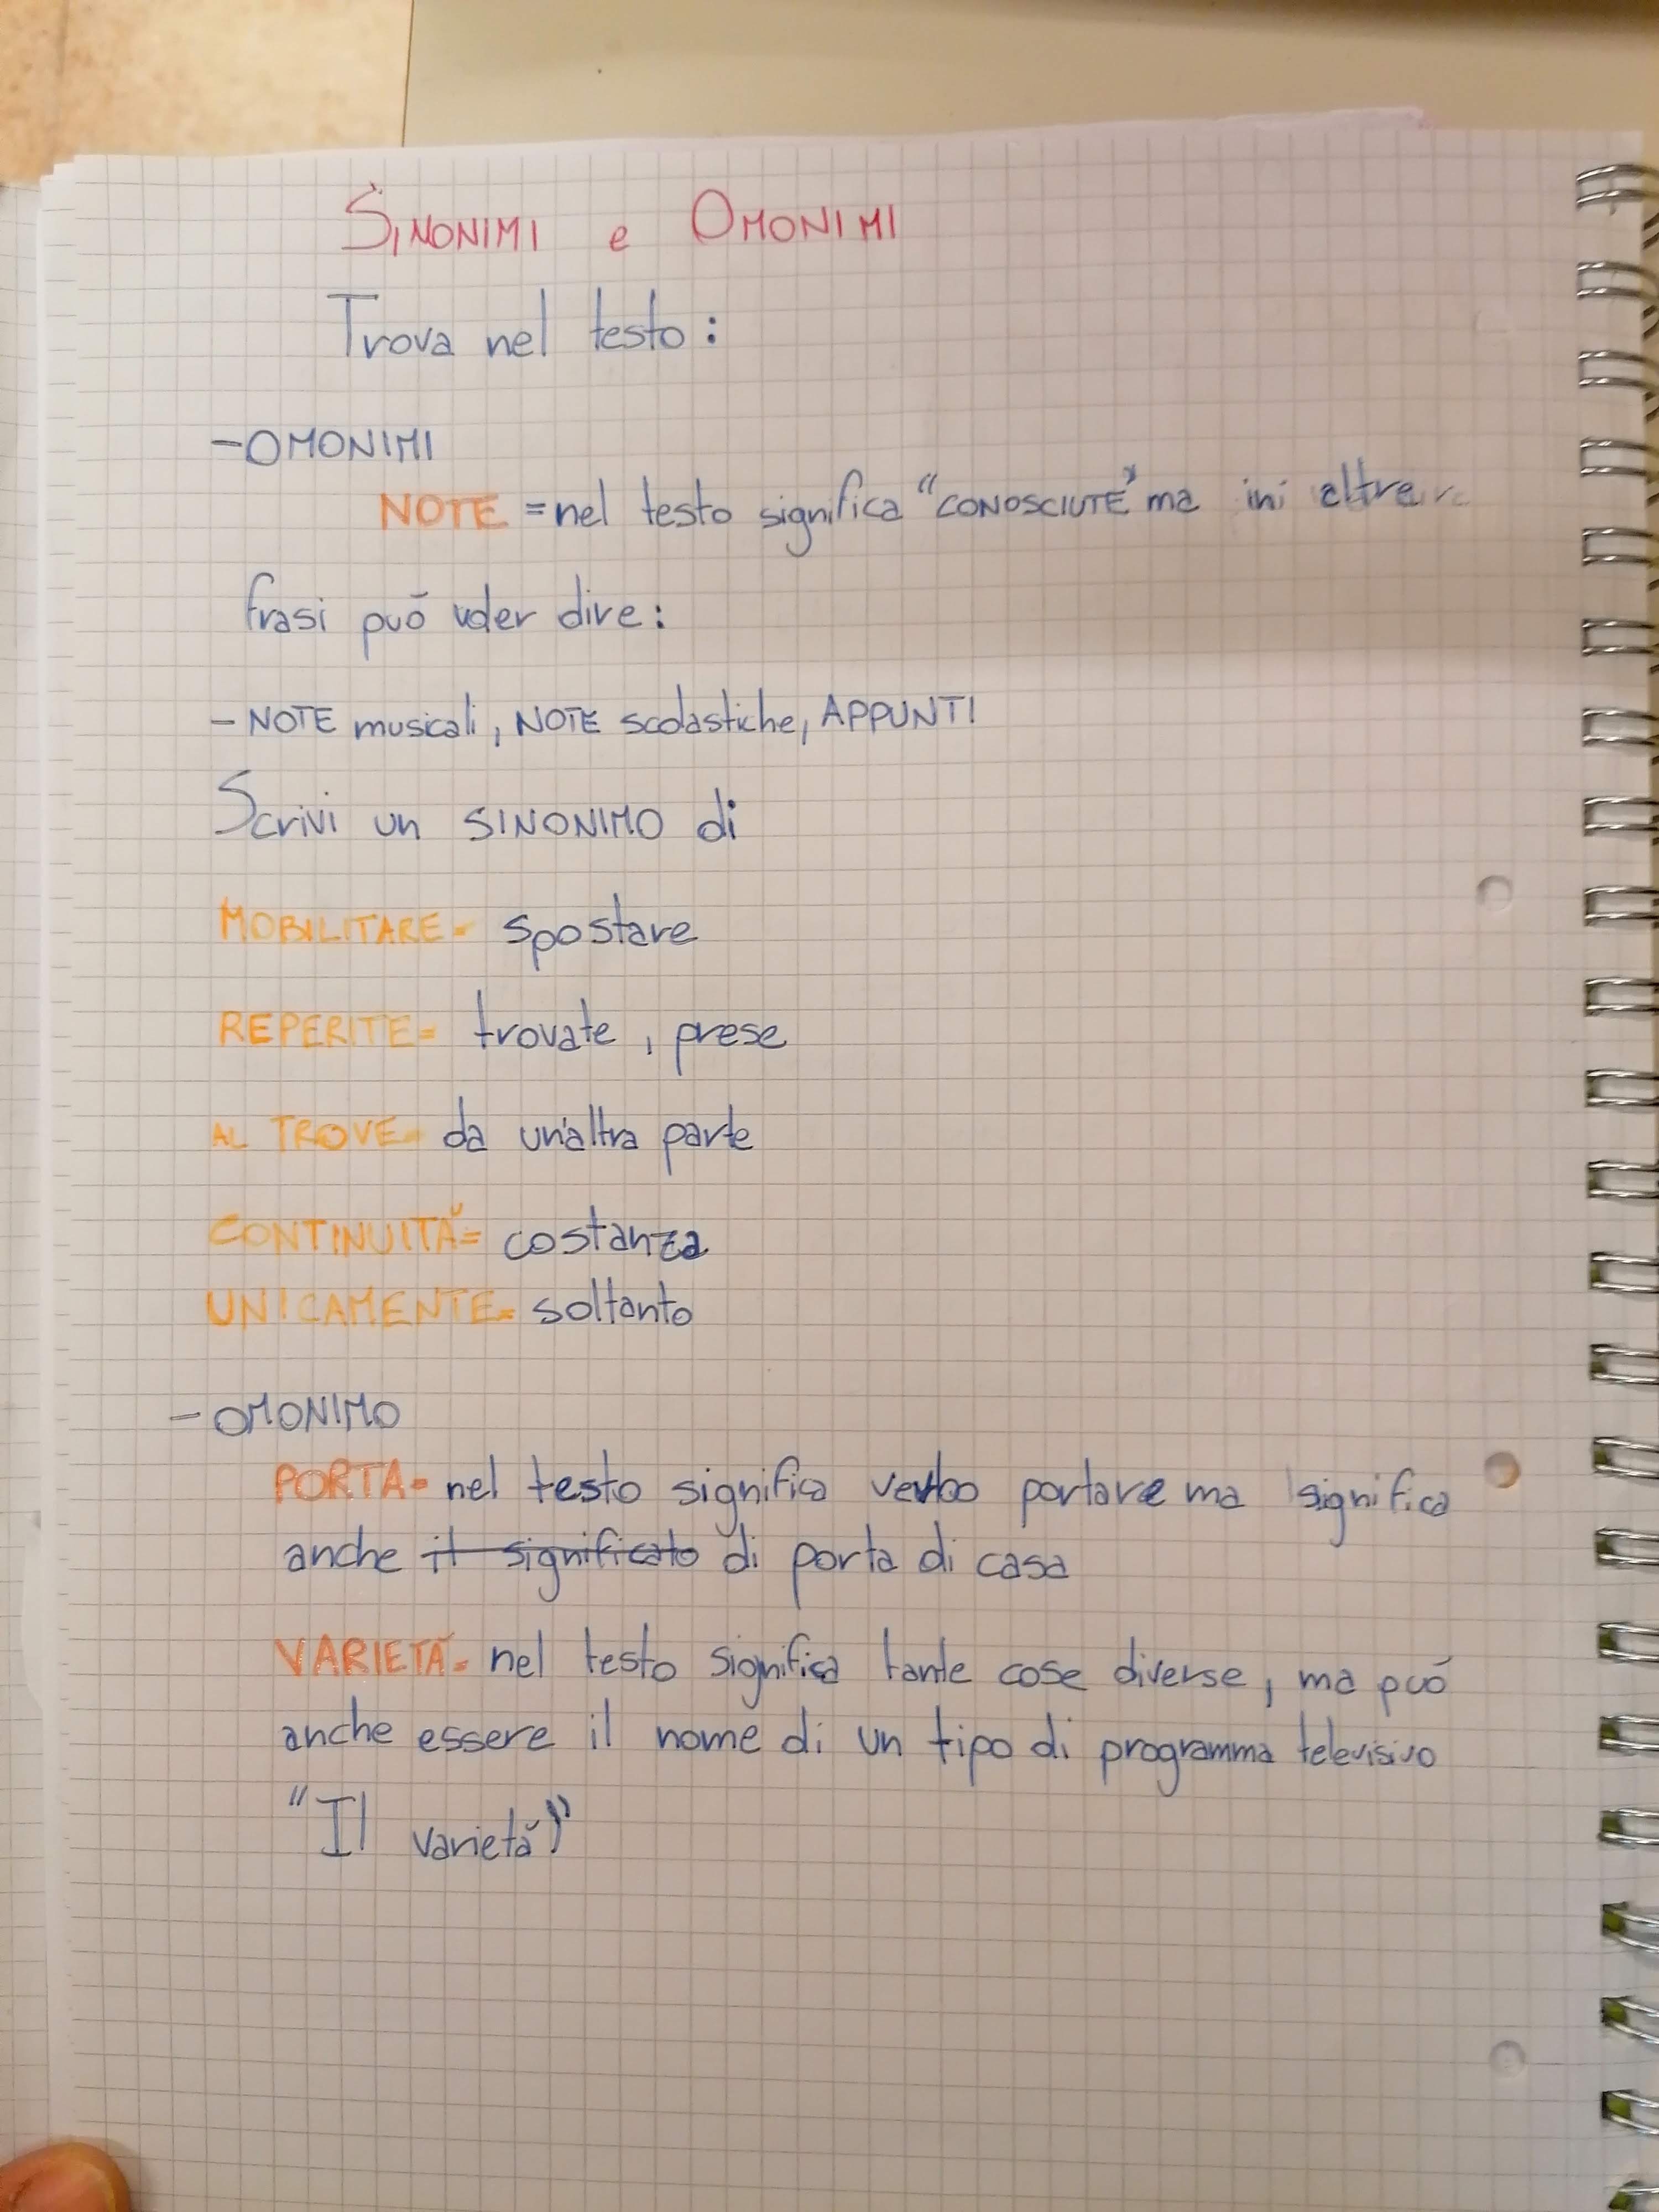 SINONIMI e OMONIMI
Trova nel testo:
-OMONIMI
NOTE = nel testo significa "CONOSCIUTE" ma in altre
frasi può voler dire:
- NOTE musicali, NOTE scolastiche, APPUNTI
Scrivi un SINONIMO di
MOBILITARE= spostare
REPERITE= trovate, prese
AL TROVE= da un'altra parte
CONTINUITÀ= costanza
UNICAMENTE= soltanto
- OMONIMO
PORTA= nel testo significa verbo portare ma significa
anche il significato di porta di casa
VARIETÀ= nel testo significa tante cose diverse, ma può
anche essere il nome di un tipo di programma televisivo
"Il varietà"